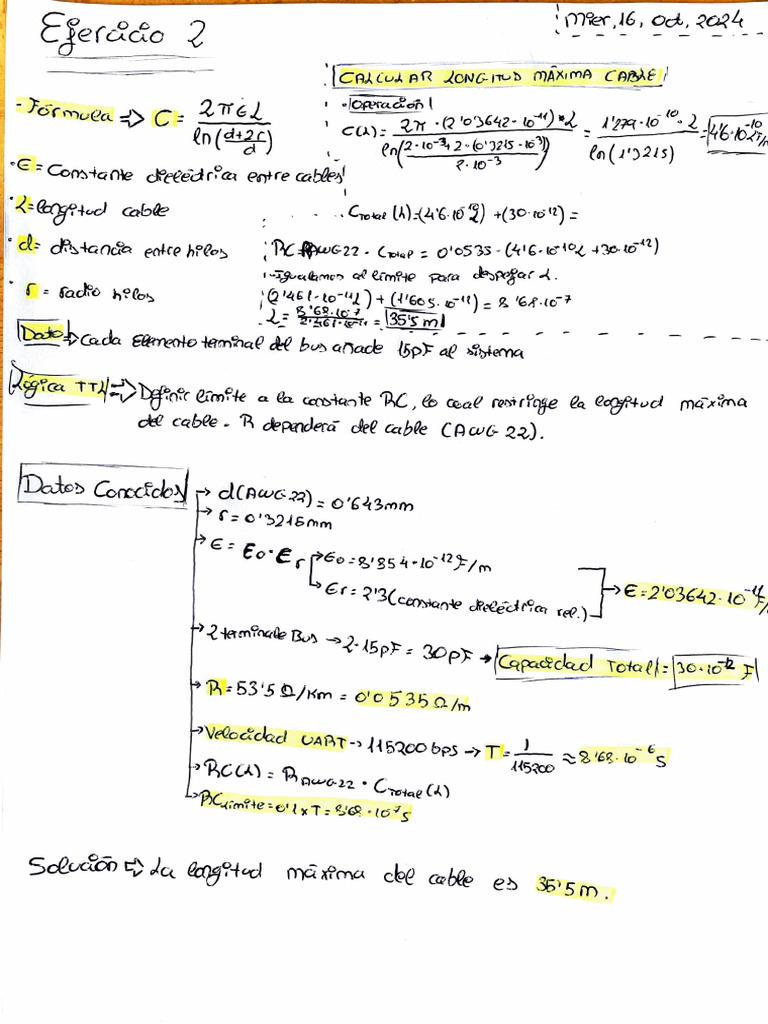 Ejercicio 2
Mier, 16, oct, 2024
CALCULAR LONGITUD MÁXIMA CABLE
- Fórmula => C = 2πεL / ln((d+2r)/d)
· Operación
C(L) = 2π·(2'03642·10^-11)·L / ln((2·10^-3+2·(0'3215·10^-3))/2·10^-3) = 1'279·10^-10·L / ln(1'3215) = 4'6·10^-10
· ε = Constante dieléctrica entre cables
· L = longitud cable
C_Total(L) = (4'6·10^-10 L) + (30·10^-12) =
· d = distancia entre hilos
RC = R_AWG22 · C_Total = 0'0535 · (4'6·10^-10 L + 30·10^-12)
· Igualamos al límite para despejar L.
· r = radio hilos
(2'461·10^-11 L) + (1'605·10^-12) = 8'68·10^-7
L = 8'68·10^-7 / 2'461·10^-11 = 35'5 m
Dato => Cada elemento terminal del bus añade 15pF al sistema
Lógica TTL => Definir límite a la constante RC, lo cual restringe la longitud máxima
del cable. R dependerá del cable (AWG 22).
Datos Conocidos
→ d(AWG 22) = 0'643mm
→ r = 0'3215mm
→ ε = ε0 · εr
→ ε0 = 8'854·10^-12 F/m
→ εr = 2'3 (constante dieléctrica rel.)
→ ε = 2'03642·10^-11 F/
→ 2 terminale Bus → 2·15pF = 30pF → Capacidad Total = 30·10^-12 F
→ R = 53'5 Ω/Km = 0'0535 Ω/m
→ Velocidad UART → 115200 bps → T = 1/115200 ≈ 8'68·10^-6 s
→ RC(L) = R_AWG22 · C_Total(L)
→ RC límite = 0'1 x T = 8'68·10^-7 s
Solución => La longitud máxima del cable es 35'5 m.